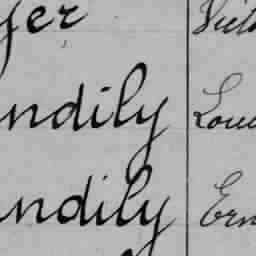 yer Vict
ndily Loui
ndily Ern